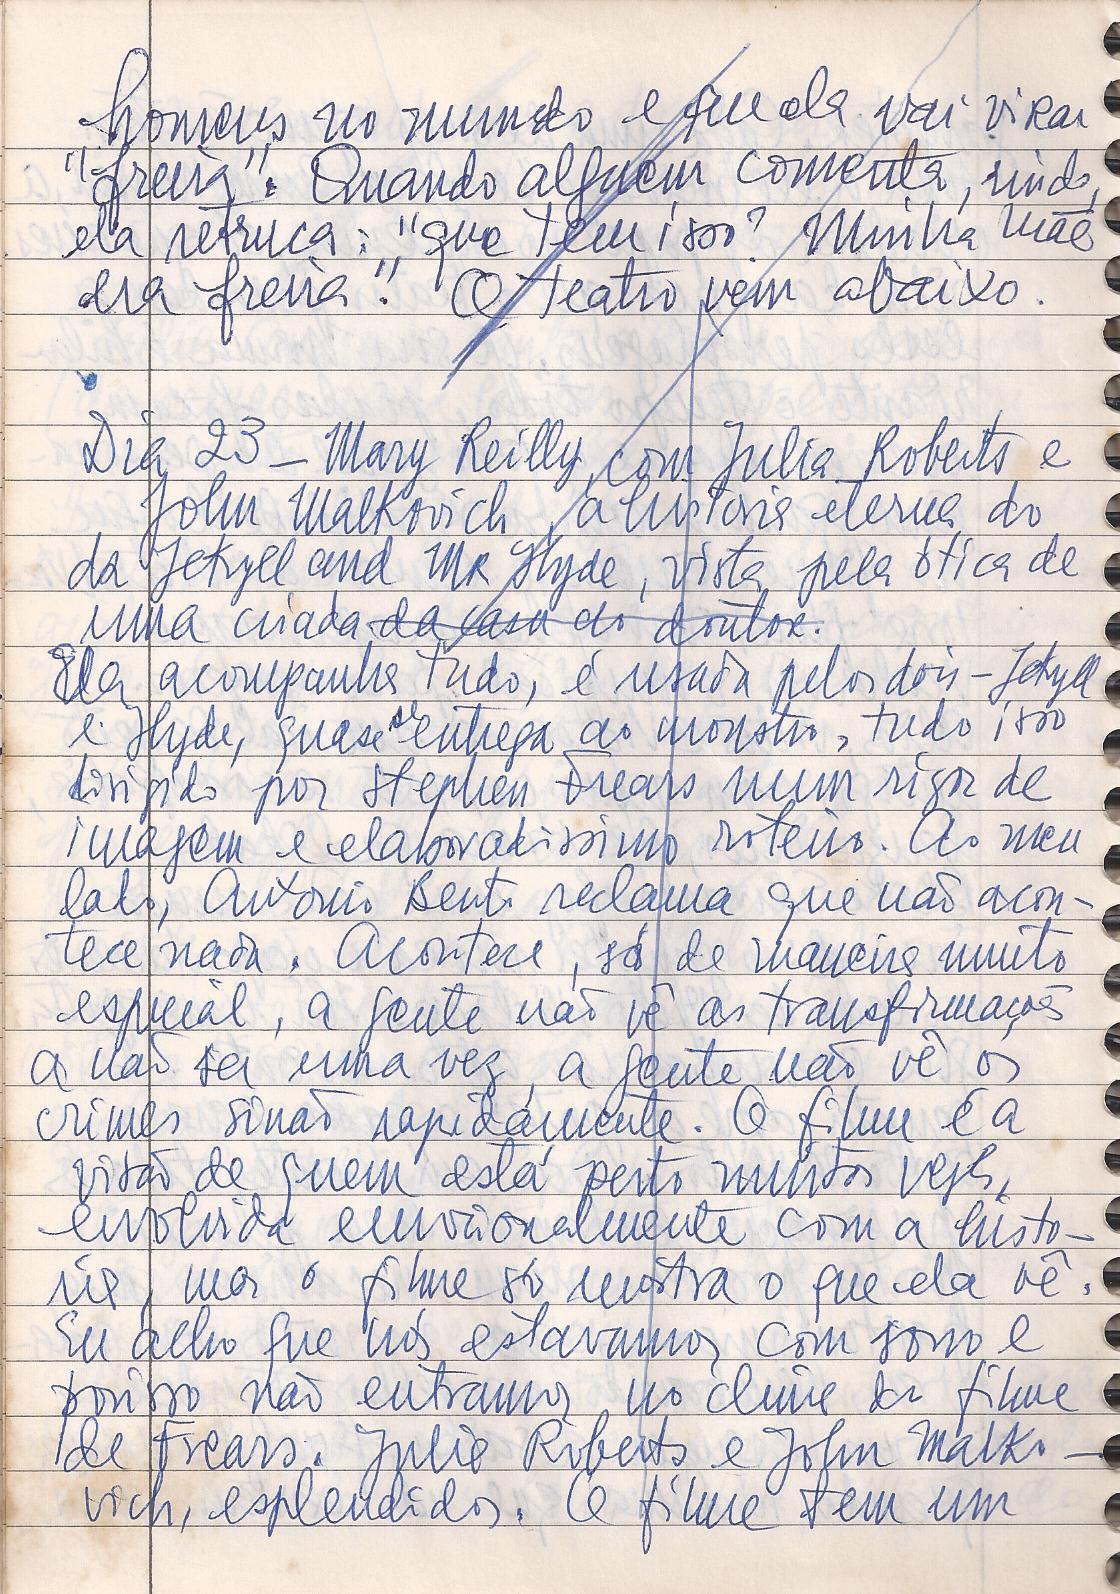 homens no mundo e que ela vai virar
"freira". Quando alguém comenta, rindo,
ela retruca: "que tem isso? Minha mãe
era freira". O teatro vem abaixo.
Dia 23 - Mary Reilly, com Julia Roberts e
John Malkovich, a historia eterna do
da Jekyll and Mr Hyde, vista pela ótica de
uma criada da casa do doutor.
Ela acompanha tudo, é usada pelos dois - Jekyll
e Hyde, quase se entrega ao monstro, tudo isso
dirigido por Stephen Frears num rigor de
imagem e elaboradissimo roteiro. Ao meu
lado, Antonio Bento reclama que não acon-
tece nada. Acontece, só de maneira muito
especial, a gente não vê as transformações
a não ser uma vez, a gente não vê os
crimes sinão rapidamente. O filme é a
visão de quem está perto muitas vezes,
envolvida emocionalmente com a histo-
ria, mas o filme só mostra o que ela vê.
Eu acho que nós estavamos com sono e
porisso não entramos no clima do filme
de Frears. Julia Roberts e John Malko-
vich, esplendidos. O filme tem um